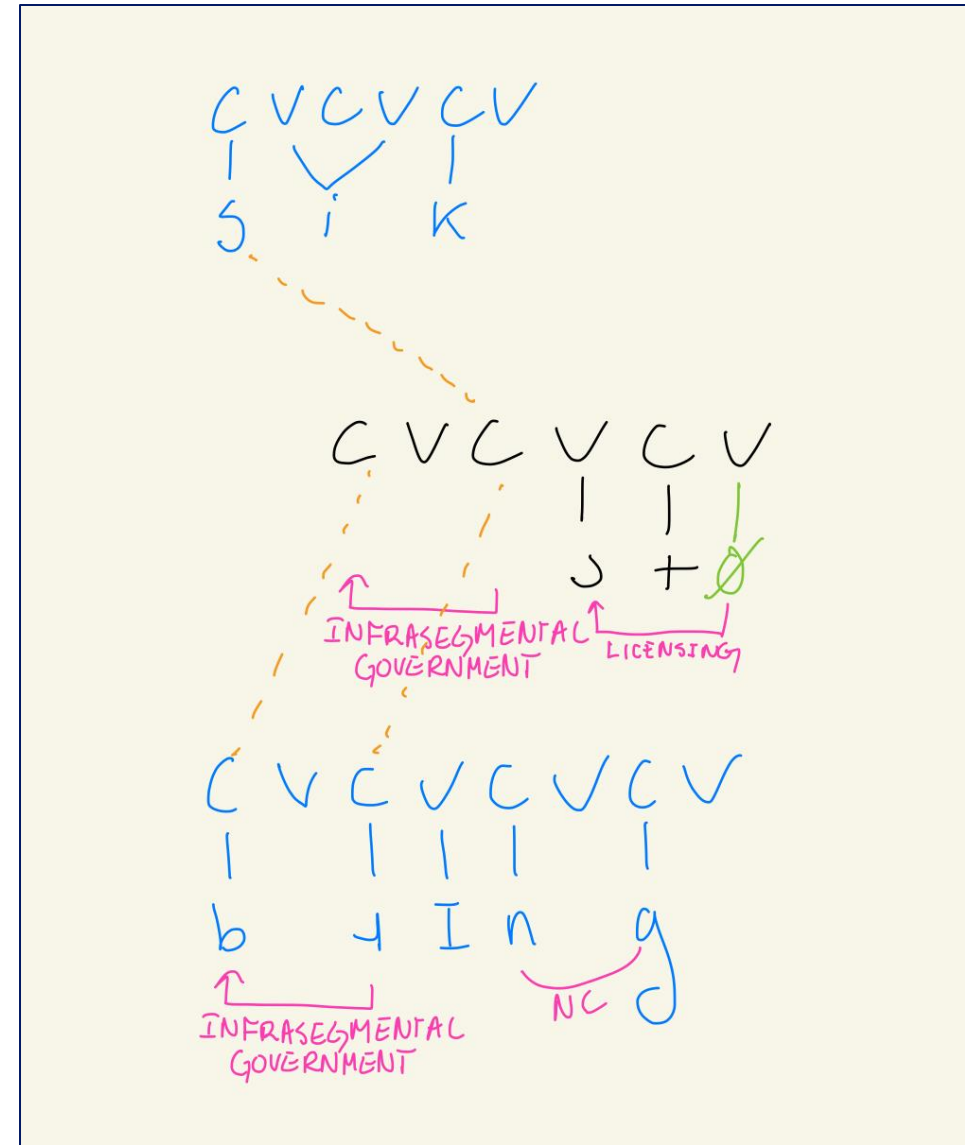 C V C V C V
S i K
C V C V C V
ɔ t ∅
INFRASEGMENTAL
GOVERNMENT
LICENSING
C V C V C V C V
b ɹ I n g
NC
INFRASEGMENTAL
GOVERNMENT